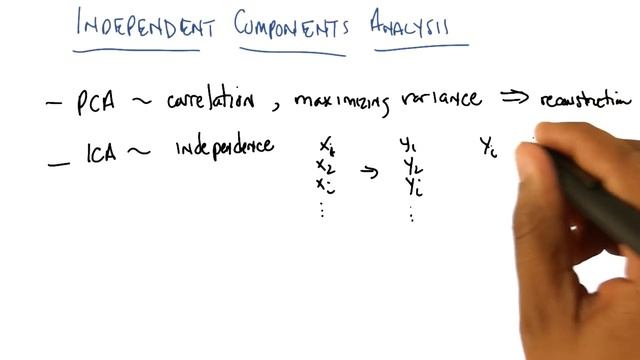 INDEPENDENT COMPONENTS ANALYSIS
- PCA ~ correlation, maximizing variance ⇒ reconstruction
- ICA ~ independence x₁ y₁ yᵢ
x₂ → y₂
xᵢ yᵢ
⋮ ⋮